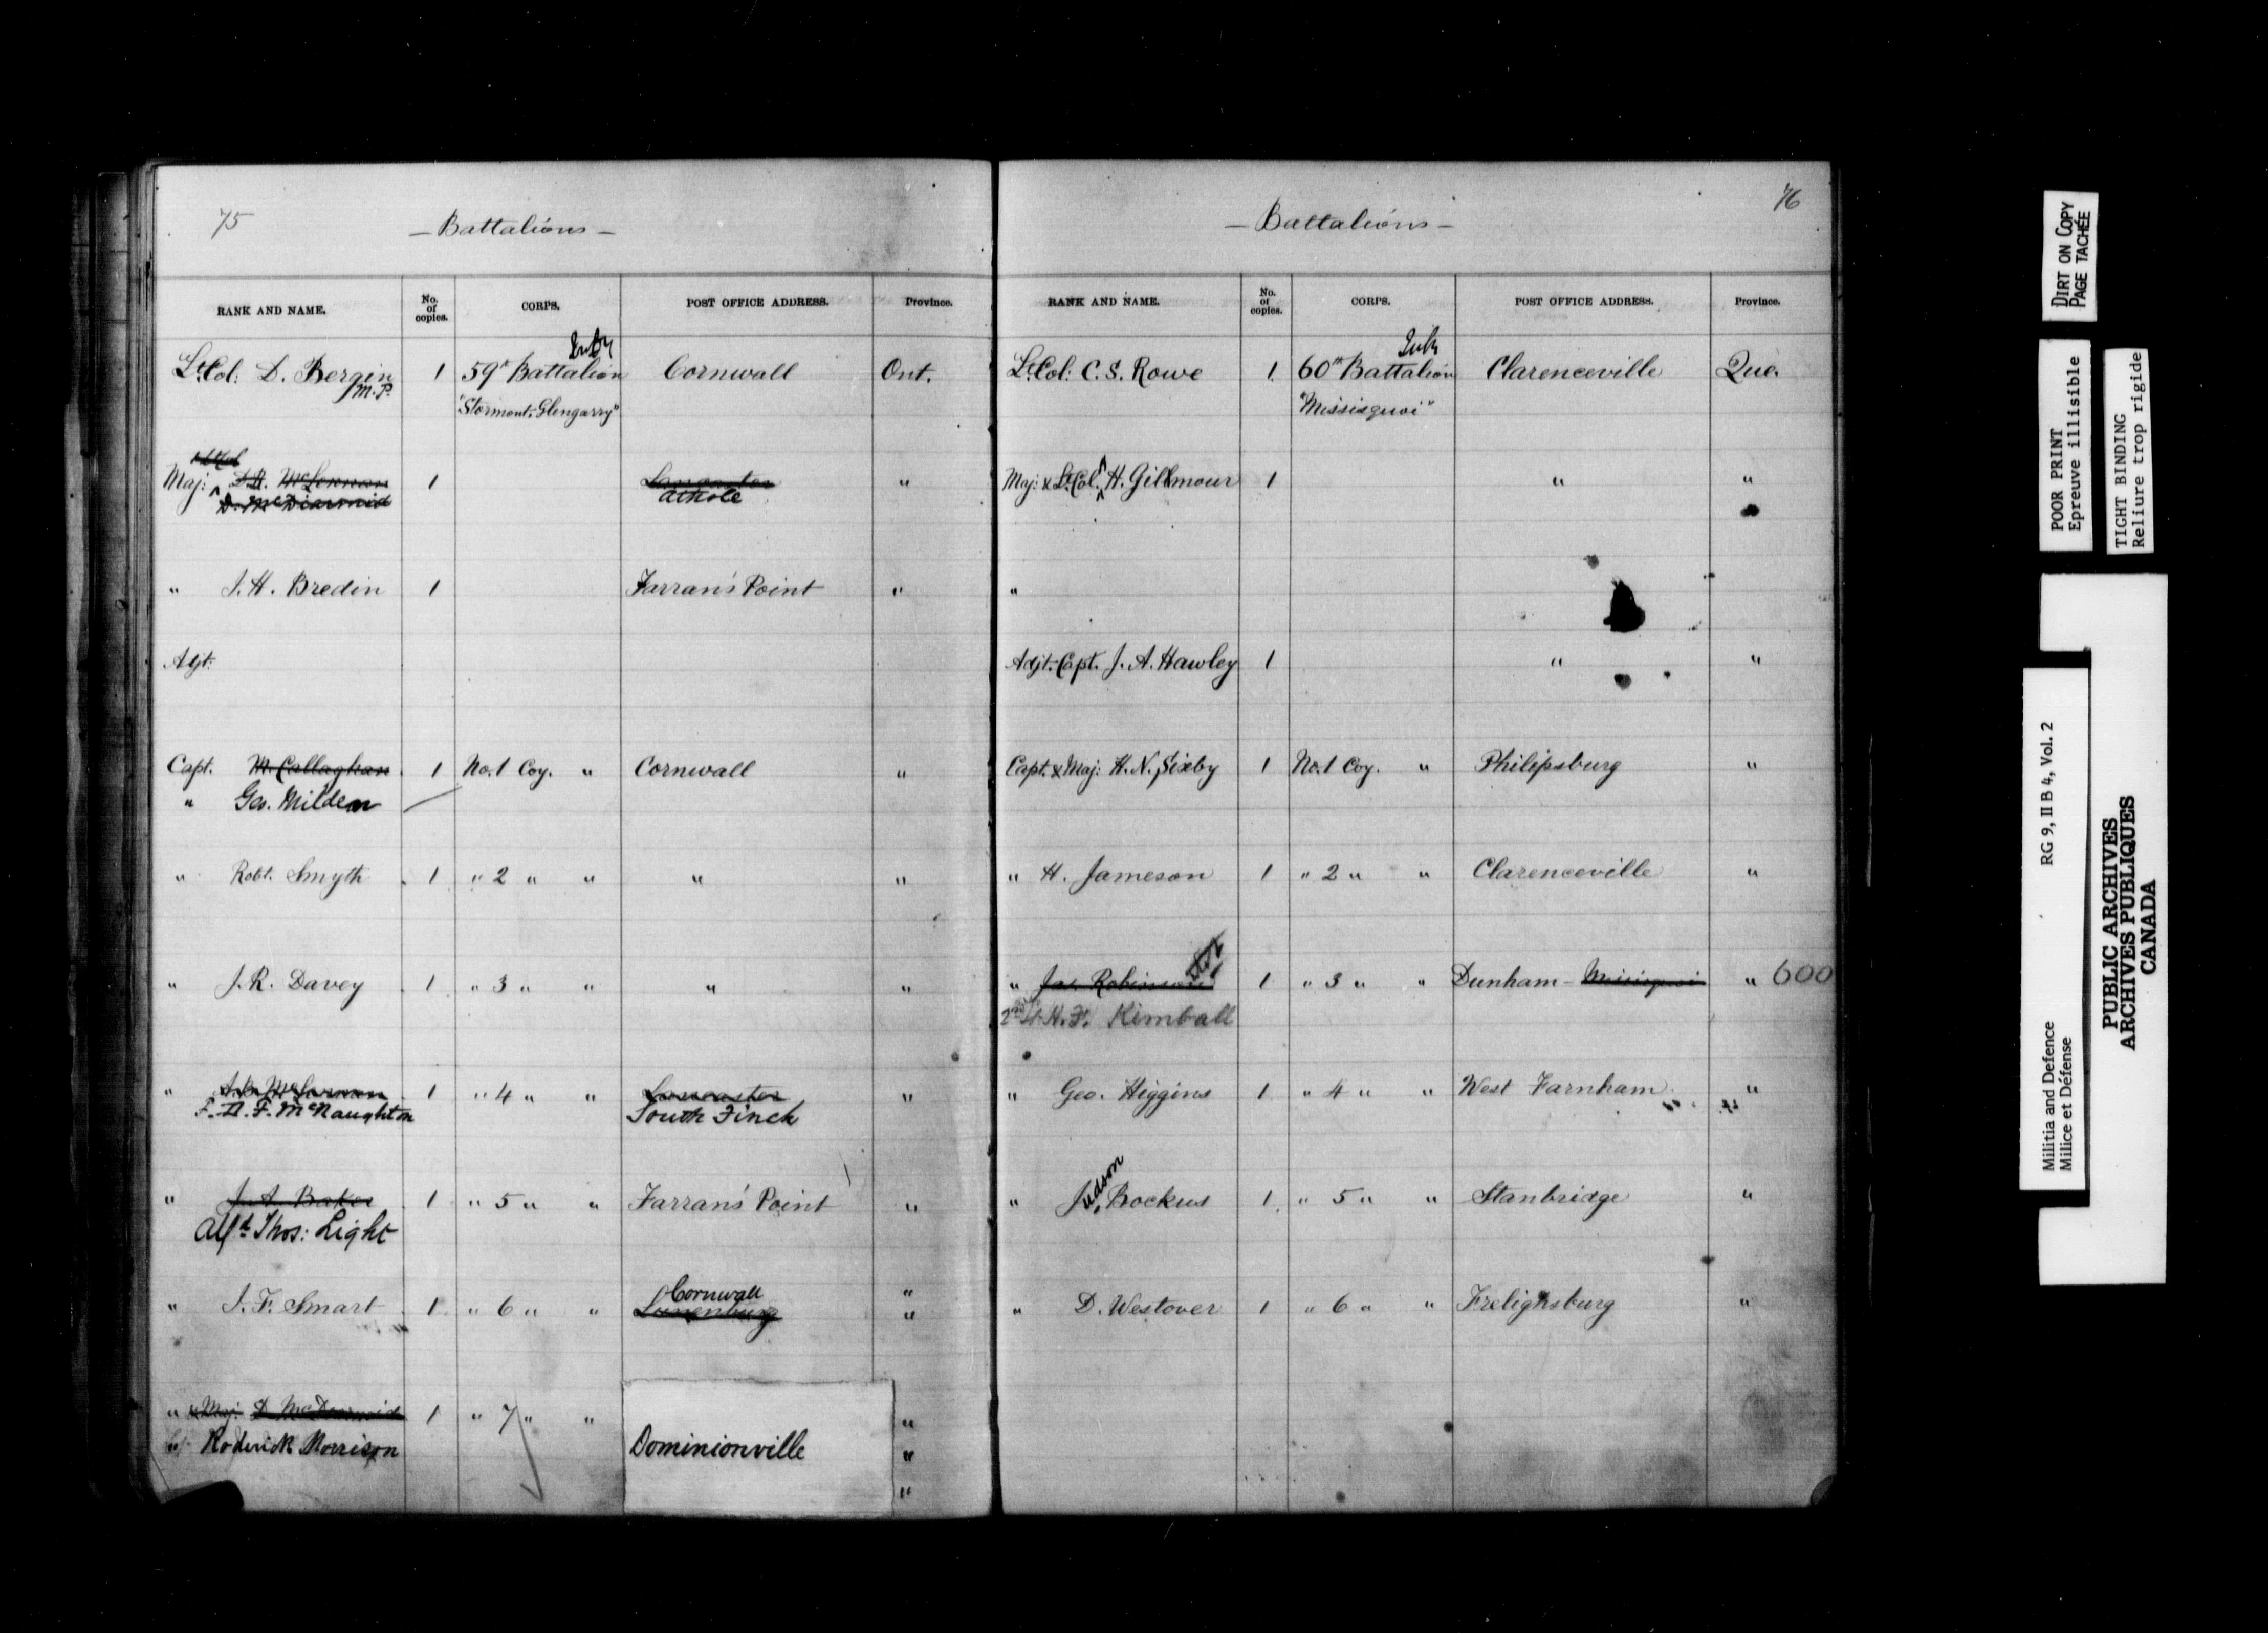 75
— Battalions —
RANK AND NAME. No. of copies. CORPS. POST OFFICE ADDRESS. Province.
Infy
Lt. Col: D. Bergin 1 59th Battalion Cornwall Ont.
M.P.
"Stormont & Glengarry"
Lt Col
Maj: 1 Lancaster "
D. McDiarmid Athole
" J. H. Bredin 1 Farran's Point "
Adjt.
Capt. M. Callaghan 1 No. 1 Coy. " Cornwall "
" Geo. Milden
" Robt. Smyth 1 " 2 " " " "
" J. R. Davey 1 " 3 " " " "
" 1 " 4 " " Lancaster "
F. D. F. McNaughton South Finch
" J. A. Baker 1 " 5 " " Farran's Point "
Alfd Thos: Light
Cornwall "
" J. F. Smart 1 " 6 " " Lunenburg "
" & Maj: D McDiarmid 1 " 7 " " "
" Roderick Morrison Dominionville "
"
76
— Battalions —
RANK AND NAME. No. of copies. CORPS. POST OFFICE ADDRESS. Province.
Infy
Lt. Col: C. S. Rowe 1 60th Battalion Clarenceville Que.
"Missisquoi"
Maj: & Lt. Col. H. Gillmour 1 " "
"
Adjt. Capt. J. A. Hawley 1 " "
Capt. & Maj: H. N. Sixby 1 No. 1 Coy. " Philipsburg "
" H. Jameson 1 " 2 " " Clarenceville "
" Jas. Robinson 1 " 3 " " Dunham - Missisquoi " 600
2nd Lt. H. F. Kimball
" Geo. Higgins 1 " 4 " " West Farnham "
" Judson Bockus 1 " 5 " " Stanbridge "
" D. Westover 1 " 6 " " Frelighsburg "
DIRT ON COPY
PAGE TACHÉE
POOR PRINT
Epreuve illisible
TIGHT BINDING
Reliure trop rigide
Militia and Defence RG 9, II B 4, Vol. 2
Milice et Défense
PUBLIC ARCHIVES
ARCHIVES PUBLIQUES
CANADA